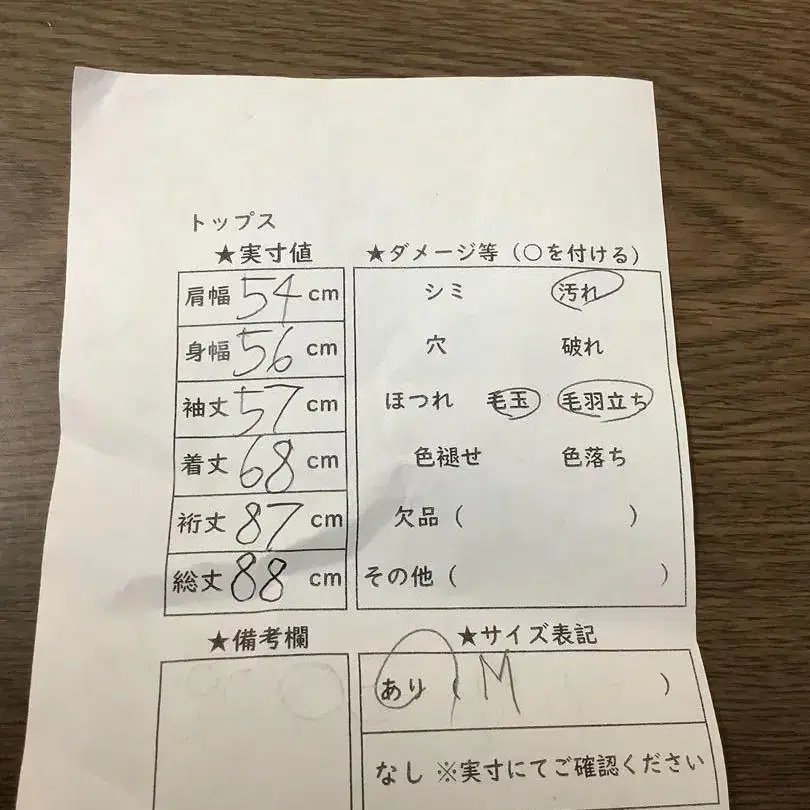 トップス
★実寸値
肩幅 54 cm
身幅 56 cm
袖丈 57 cm
着丈 68 cm
裄丈 87 cm
総丈 88 cm
★ダメージ等（○を付ける）
シミ 汚れ
穴 破れ
ほつれ 毛玉 毛羽立ち
色褪せ 色落ち
欠品（ ）
その他（ ）
★備考欄
★サイズ表記
あり（ M ）
なし ※実寸にてご確認ください